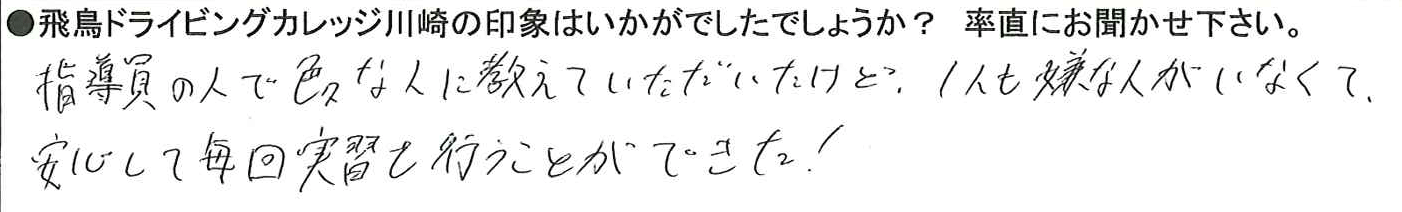 ●飛鳥ドライビングカレッジ川崎の印象はいかがでしたでしょうか？ 率直にお聞かせ下さい。
指導員の人で色々な人に教えていただいたけど、1人も嫌な人がいなくて、
安心して毎回実習を行うことができた！